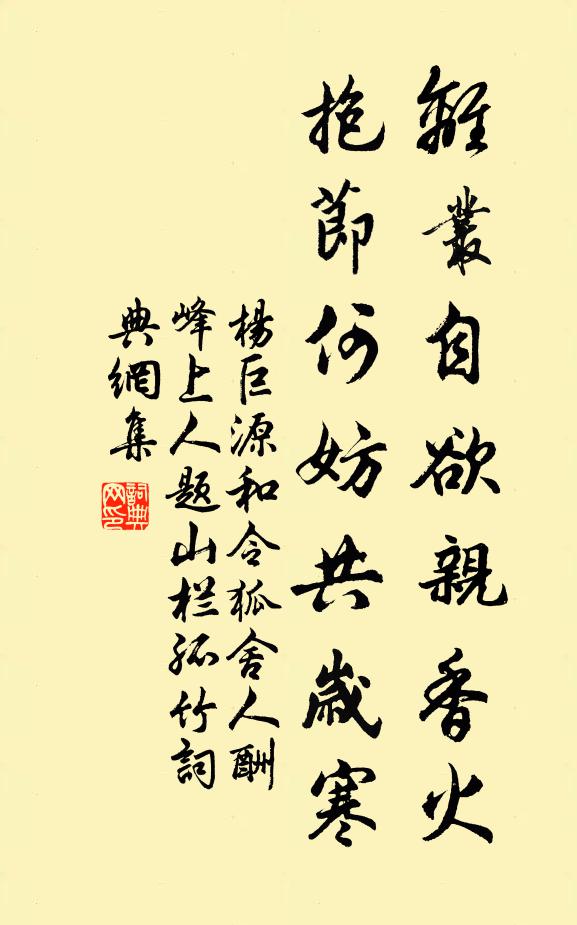 離叢自欲親香火
抱節何妨共歲寒
楊巨源和令狐舍人酬
峰上人題山栏孤竹詞
典網集
詞典網印